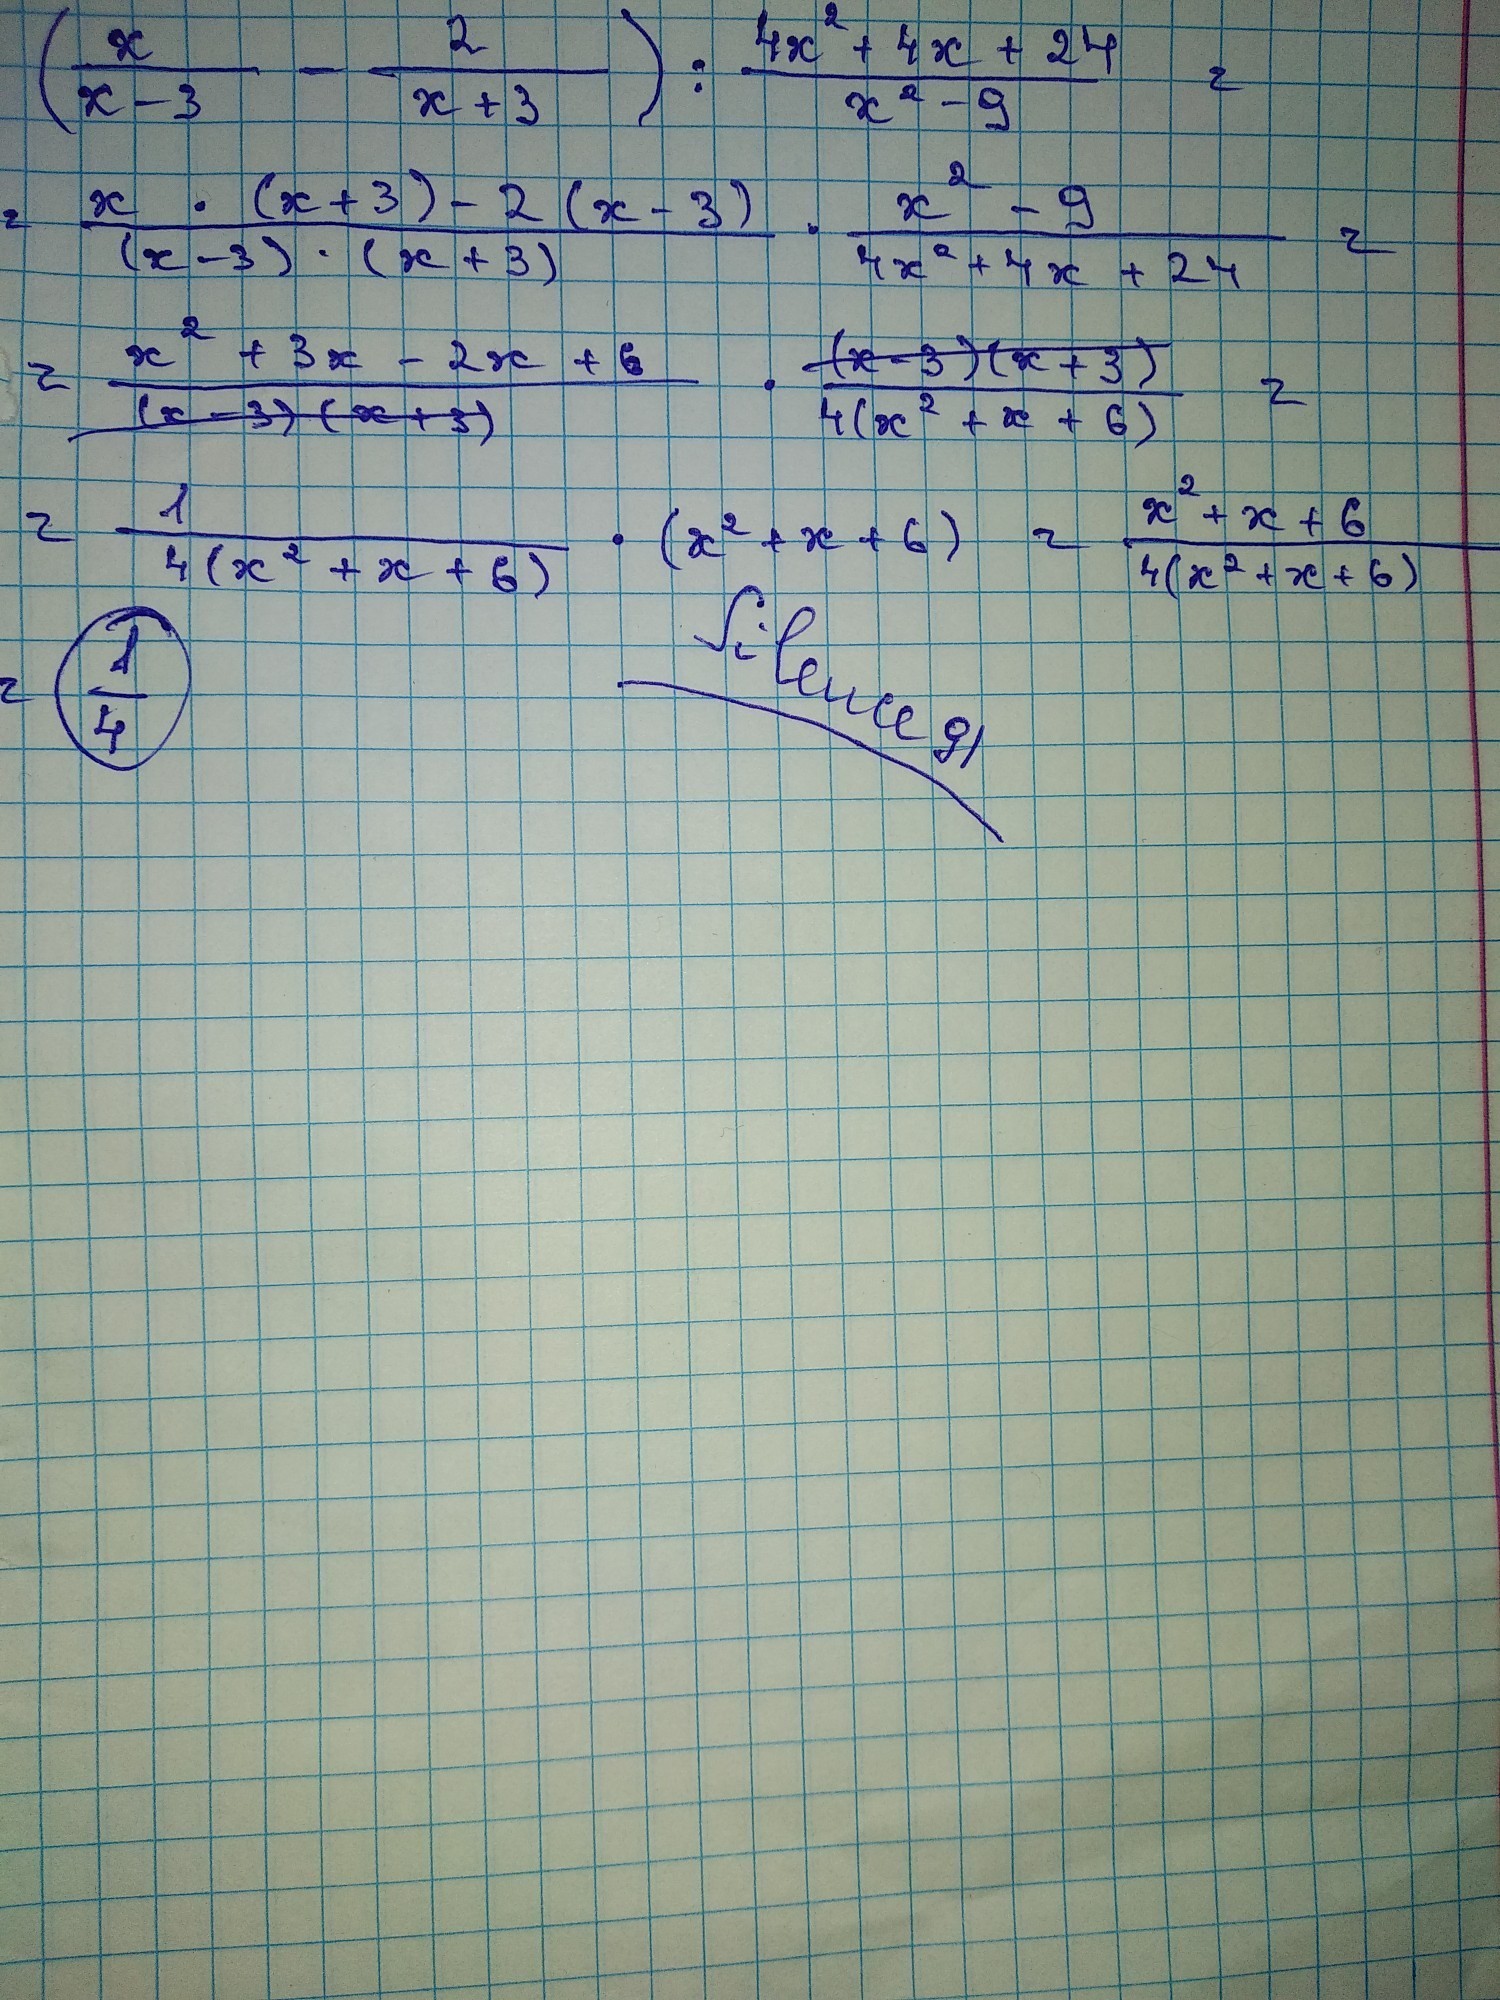 (x/(x-3) - 2/(x+3)) : (4x²+4x+24)/(x²-9) =
= (x · (x+3) - 2(x-3))/((x-3) · (x+3)) · (x²-9)/(4x²+4x+24) =
= (x²+3x-2x+6)/((x-3)(x+3)) · ((x-3)(x+3))/(4(x²+x+6)) =
= 1/(4(x²+x+6)) · (x²+x+6) = (x²+x+6)/(4(x²+x+6))
= 1/4
Silence91